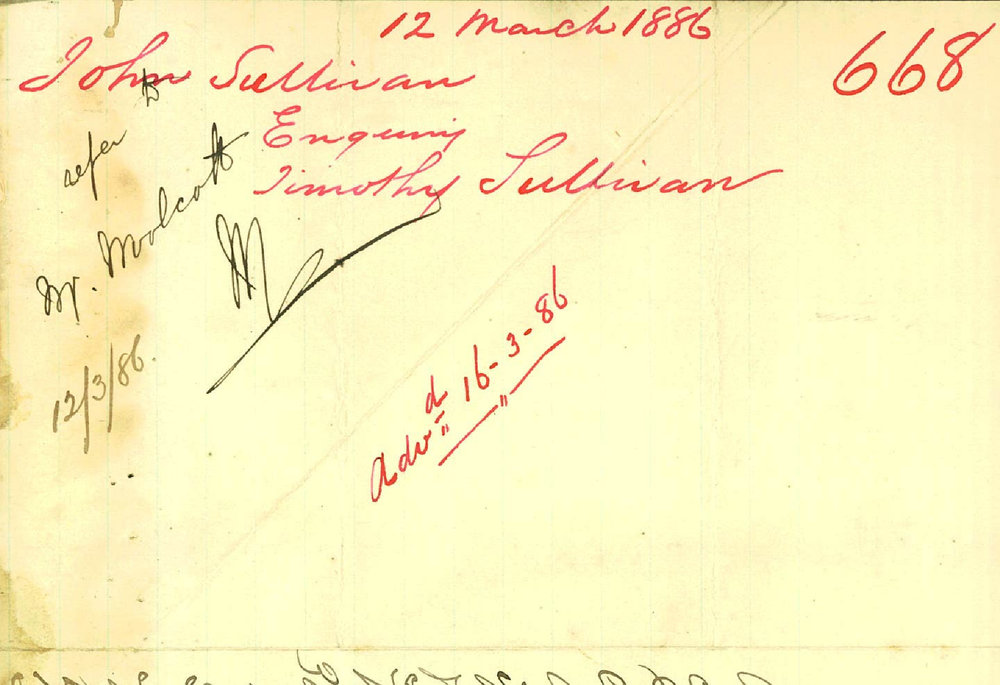 12 March 1886
668
John Sullivan
Enquiry
Timothy Sullivan
refer to
Mr. Woolcott
M
12/3/86.
Advd 16-3-86